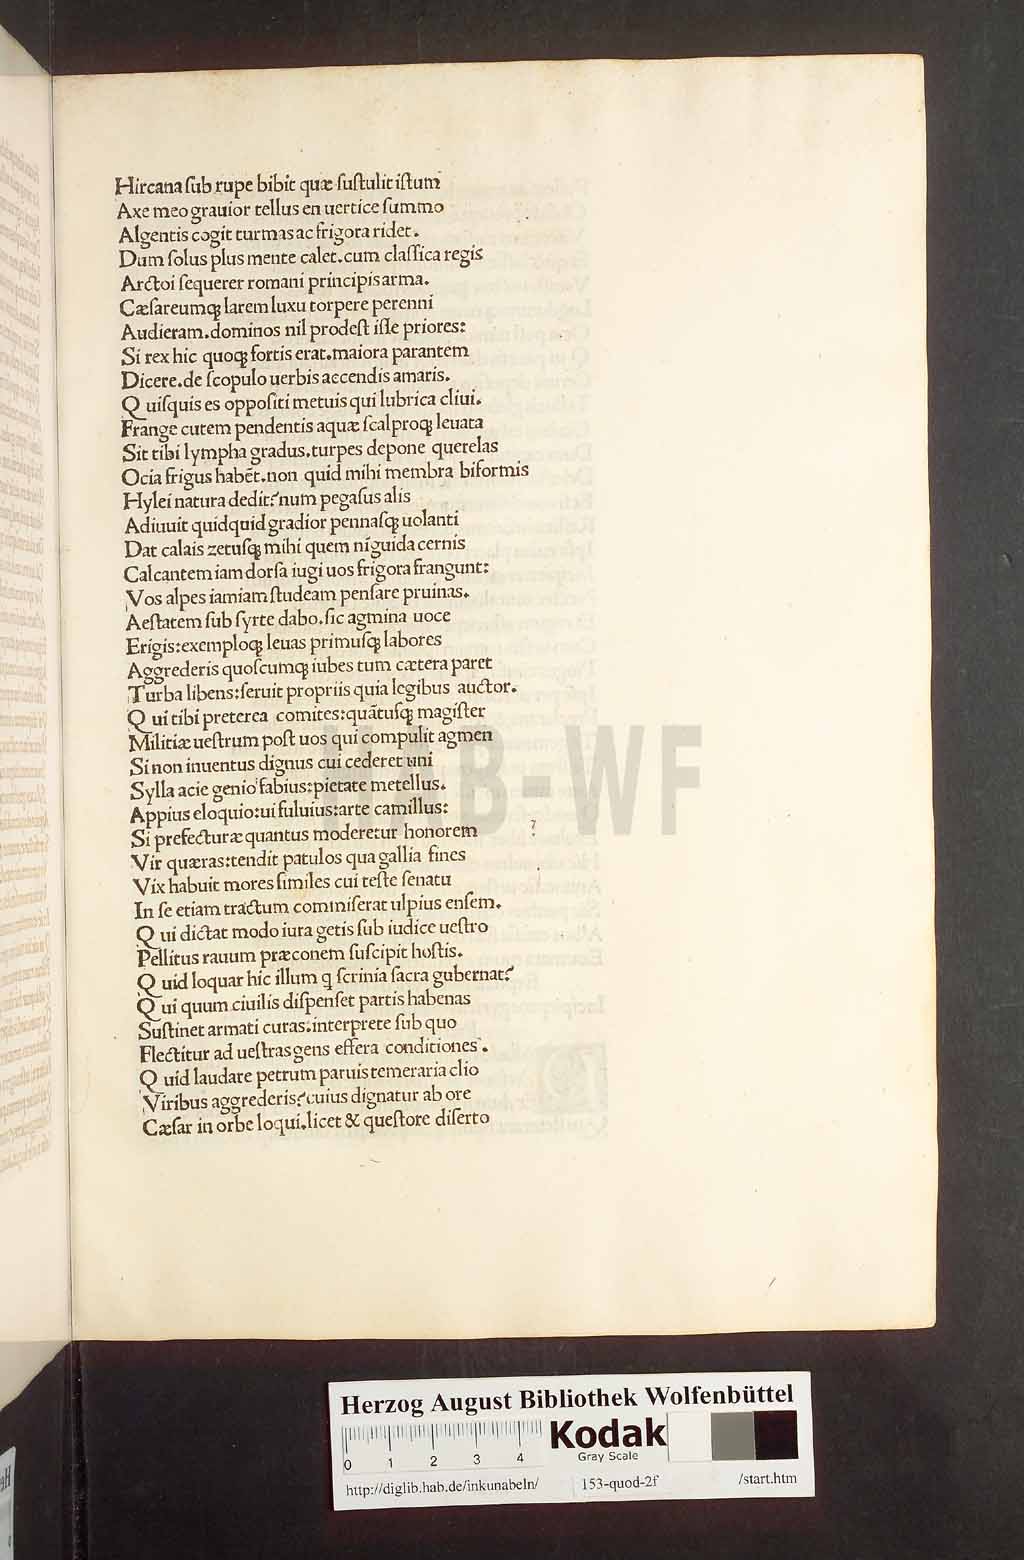 Hircana ſub rupe bibit quæ ſuſtulit iſtum
Axe meo grauior tellus en uertice ſummo
Algentis cogit turmas ac frigora ridet.
Dum ſolus plus mente calet.cum claſſica regis
Arctoi ſequerer romani principis arma.
Cæſareumqꝫ larem luxu torpere perenni
Audieram.dominos nil prodeſt iſſe priores:
Si rex hic quoqꝫ fortis erat.maiora parantem
Dicere.de ſcopulo uerbis accendis amaris.
Q uiſquis es oppoſiti metuis qui lubrica cliui.
Frange cutem pendentis aquæ ſcalproqꝫ leuata
Sit tibi lympha gradus.turpes depone querelas
Ocia frigus habẽt.non quid mihi membra biformis
Hylei natura dedit?num pegaſus alis
Adiuuit quidquid gradior pennaſqꝫ uolanti
Dat calais zetuſqꝫ mihi quem niguida cernis
Calcantem iam dorſa iugi uos frigora frangunt:
Vos alpes iamiam ſtudeam penſare pruinas.
Aeſtatem ſub ſyrte dabo.ſic agmina uoce
Erigis:exemploqꝫ leuas primuſqꝫ labores
Aggrederis quoſcumqꝫ iubes tum cætera paret
Turba libens:ſeruit propriis quia legibus auctor.
Q ui tibi preterea comites:quãtuſqꝫ magiſter
Militiæ ueſtrum poſt uos qui compulit agmen
Si non inuentus dignus cui cederet uni
Sylla acie genio fabius:pietate metellus.
Appius eloquio:ui fuluius:arte camillus:
Si prefecturæ quantus moderetur honorem
Vir quæras:tendit patulos qua gallia fines
Vix habuit mores ſimiles cui teſte ſenatu
In ſe etiam tractum commiſerat ulpius enſem.
Q ui dictat modo iura getis ſub iudice ueſtro
Pellitus rauum præconem ſuſcipit hoſtis.
Q uid loquar hic illum q ſcrinia ſacra gubernat?
Q ui quum ciuilis diſpenſet partis habenas
Suſtinet armati curas:interprete ſub quo
Flectitur ad ueſtras gens effera conditiones.
Q uid laudare petrum paruis temeraria clio
Viribus aggrederis?cuius dignatur ab ore
Cæſar in orbe loqui.licet & queſtore diſerto
HAB-WF
Herzog August Bibliothek Wolfenbüttel
0 1 2 3 4
Kodak
Gray Scale
http://diglib.hab.de/inkunabeln/ 153-quod-2f /start.htm